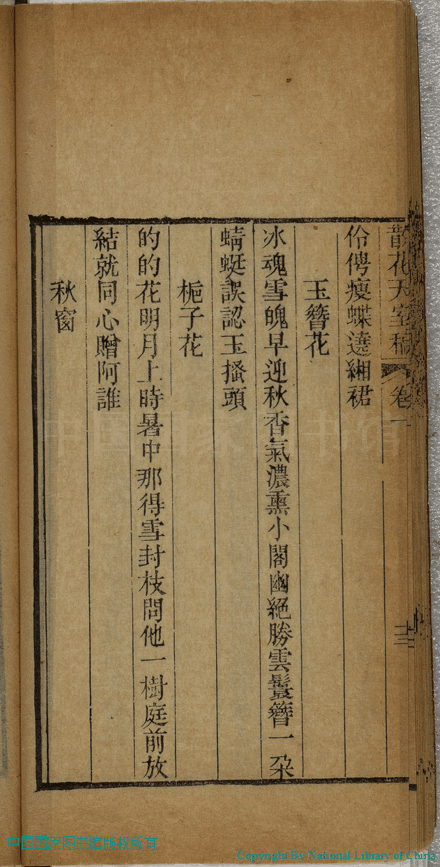 散花天室稿 卷一
伶俜瘦蝶遶緗裙
玉簪花
冰魂雪魄早迎秋香氣濃熏小閣幽絕勝雲鬟簪一朶
蜻蜓誤認玉搔頭
梔子花
的的花明月上時暑中那得雪封枝問他一樹庭前放
結就同心贈阿誰
秋窗
Copyright By National Library of China